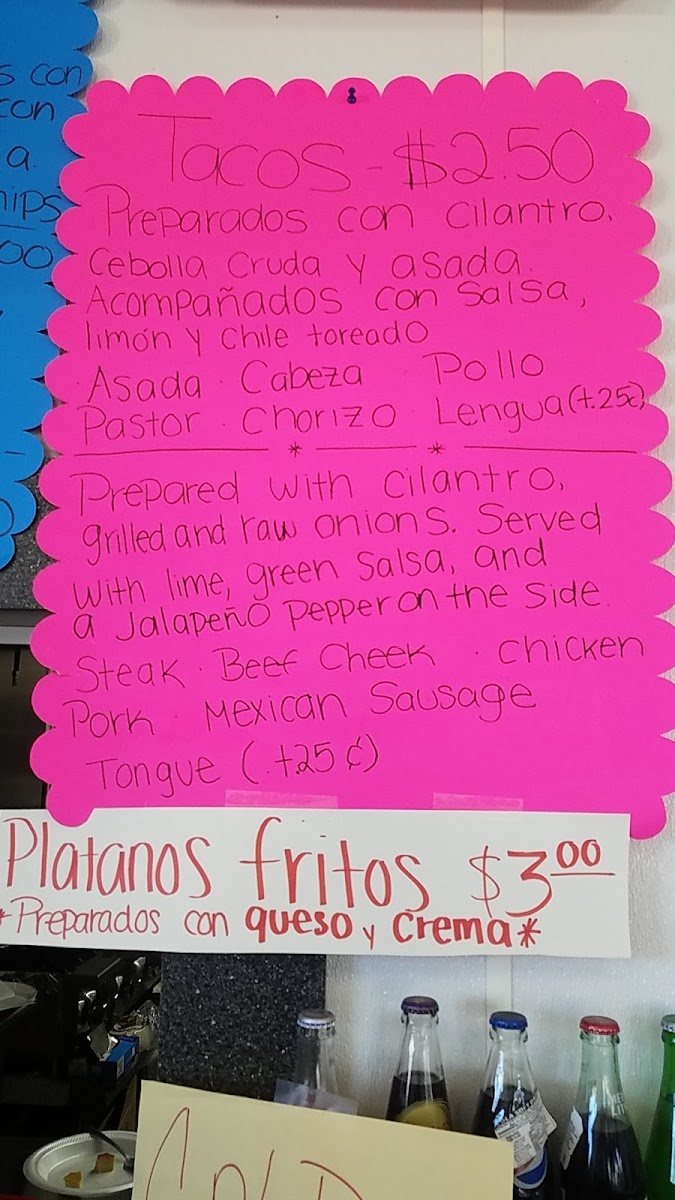 s con
con
a.
hips
00
Tacos - $2.50
Preparados con cilantro,
Cebolla cruda y asada.
Acompañados con salsa,
limón y chile toreado
Asada · Cabeza · Pollo
Pastor · Chorizo · Lengua (+.25¢)
Prepared with cilantro,
grilled and raw onions. Served
with lime, green salsa, and
a Jalapeño pepper on the side.
Steak · Beef Cheek · chicken
Pork · Mexican Sausage
Tongue (.+.25 ¢)
Platanos fritos $3.00
*Preparados con queso y crema*